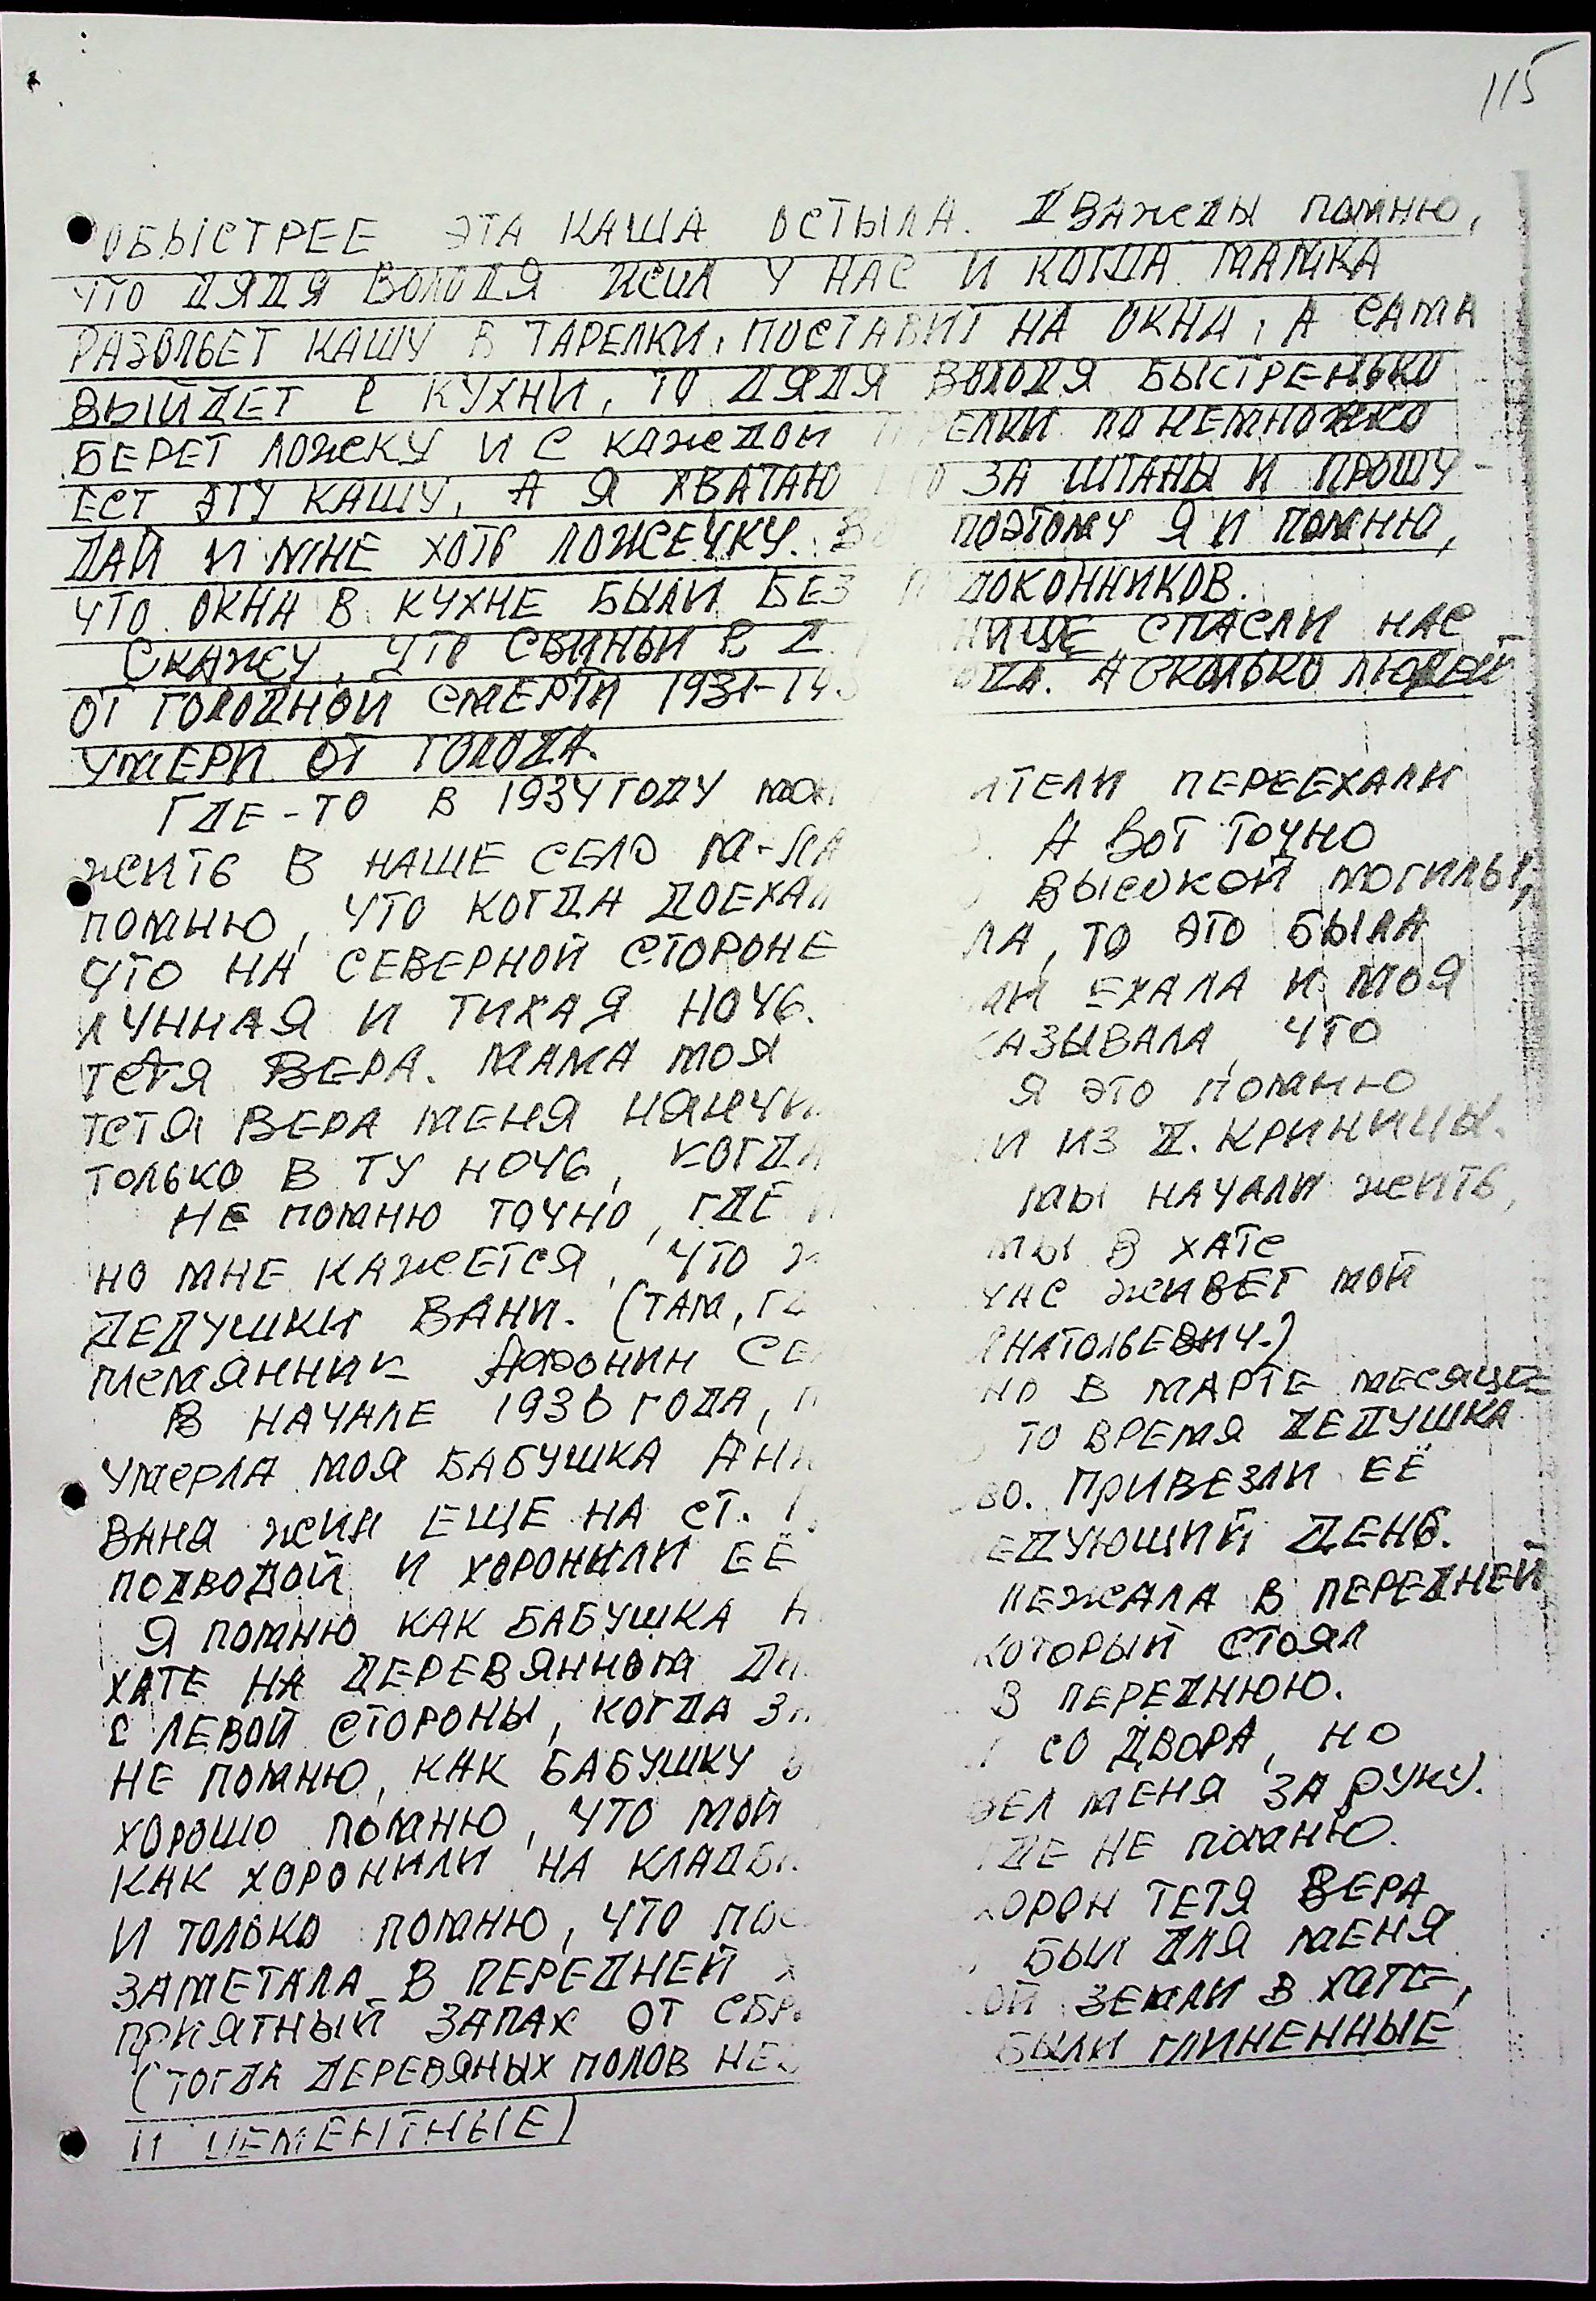 115
ОБЫСТРЕЕ ЭТА КАША ОСТЫЛА. ДВАЖДЫ ПОМНЮ,
ЧТО ДЯДЯ ВОЛОДЯ ЖИЛ У НАС И КОГДА МАМКА
РАЗОЛЬЕТ КАШУ В ТАРЕЛКИ, ПОСТАВИТ НА ОКНА, А САМА
ВЫЙДЕТ С КУХНИ, ТО ДЯДЯ ВОЛОДЯ БЫСТРЕНЬКО
БЕРЕТ ЛОЖКУ И С КАЖДОЙ РЕЛКИ ПОНЕМНОЖКО
ЕСТ ЭТУ КАШУ, А Я ХВАТАЮ О ЗА ШТАНЫ И ПРОШУ -
ДАЙ И МНЕ ХОТЬ ЛОЖЕЧКУ. ПОЭТОМУ Я И ПОМНЮ,
ЧТО ОКНА В КУХНЕ БЫЛИ БЕЗ П ДОКОННИКОВ.
СКАЖУ, ЧТО СВИНЬИ В Д. НИЦЕ СПАСЛИ НАС
ОТ ГОЛОДНОЙ СМЕРТИ 1931-19 ОДА. А СКОЛЬКО ЛЮДЕЙ
УМЕРИ ОТ ГОЛОДА.
ГДЕ-ТО В 1934 ГОДУ МОИ ИТЕЛИ ПЕРЕЕХАЛИ
ЖИТЬ В НАШЕ СЕЛО М- А ВОТ ТОЧНО
ПОМНЮ, ЧТО КОГДА ДОЕХАЛ ВЫСОКОЙ МОГИЛЫ,
ЧТО НА СЕВЕРНОЙ СТОРОНЕ ЛА, ТО ЭТО БЫЛА
ЛУННАЯ И ТИХАЯ НОЧЬ. МИ ЕХАЛА И МОЯ
ТЕТЯ ВЕРА. МАМА МОЯ КАЗЫВАЛА, ЧТО
ТЕТЯ ВЕРА МЕНЯ НЯНЧИ Я ЭТО ПОМНЮ
ТОЛЬКО В ТУ НОЧЬ, КОГДА И ИЗ Д. КРИНИЦЫ.
НЕ ПОМНЮ ТОЧНО, ГДЕ МЫ НАЧАЛИ ЖИТЬ,
НО МНЕ КАЖЕТСЯ, ЧТО Ж МЫ В ХАТЕ
ДЕДУШКИ ВАНИ. (ТАМ, ГД ЧАС ЖИВЕТ МОЙ
ПЛЕМЯННИК АФОНИН СЕ АНАТОЛЬЕВИЧ.)
В НАЧАЛЕ 1936 ГОДА, П НО В МАРТЕ МЕСЯЦЕ
УМЕРЛА МОЯ БАБУШКА АНН ТО ВРЕМЯ ДЕДУШКА
ВАНЯ ЖИЛ ЕЩЕ НА СТ. ВО. ПРИВЕЗЛИ ЕЁ
ПОДВОДОЙ И ХОРОНИЛИ ЕЁ ЕДУЮЩИЙ ДЕНЬ.
Я ПОМНЮ КАК БАБУШКА Н ЛЕЖАЛА В ПЕРЕДНЕЙ
ХАТЕ НА ДЕРЕВЯННОМ ДИ КОТОРЫЙ СТОЯЛ
С ЛЕВОЙ СТОРОНЫ, КОГДА ЗА В ПЕРЕДНЮЮ.
НЕ ПОМНЮ, КАК БАБУШКУ В СО ДВОРА, НО
ХОРОШО ПОМНЮ, ЧТО МОЙ ВЕЛ МЕНЯ ЗА РУКУ.
КАК ХОРОНИЛИ НА КЛАДБИ ДЕ НЕ ПОМНЮ.
И ТОЛЬКО ПОМНЮ, ЧТО ПОС ХОРОН ТЕТЯ ВЕРА
ЗАМЕТАЛА В ПЕРЕДНЕЙ Х БЫЛ ДЛЯ МЕНЯ
ПРИЯТНЫЙ ЗАПАХ ОТ СБР ОЙ ЗЕМЛИ В ХАТЕ,
(ТОГДА ДЕРЕВЯНЫХ ПОЛОВ НЕ БЫЛИ ГЛИНЕННЫЕ
И ЦЕМЕНТНЫЕ)